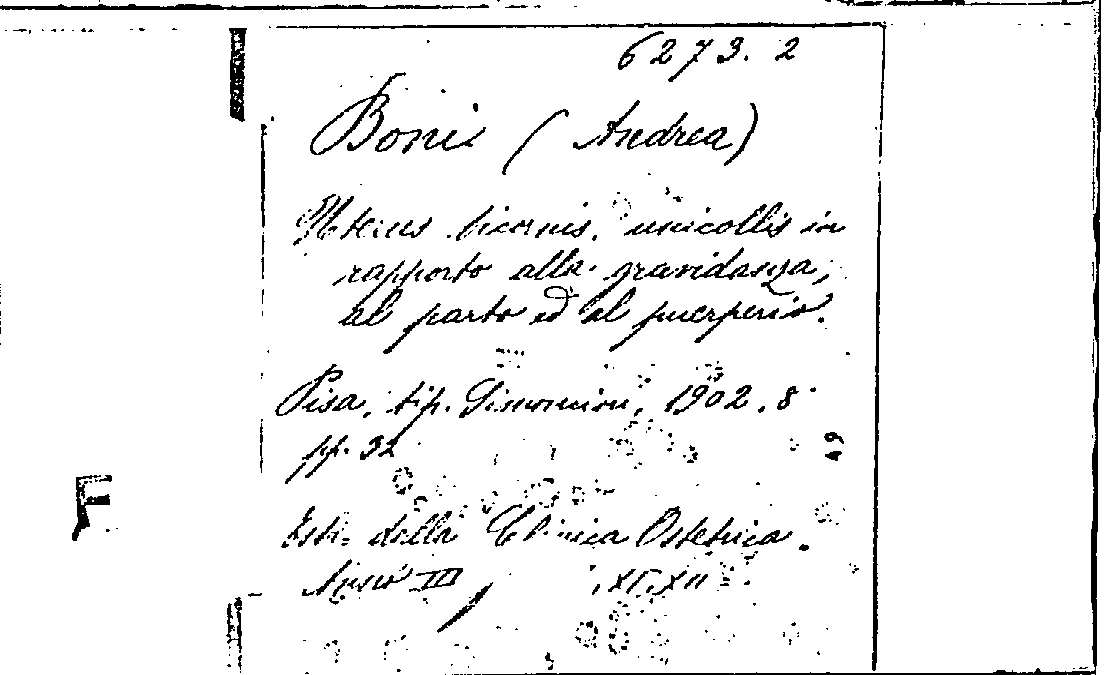 6273. 2
Boni (Andrea)
Uterus bicornis, unicollis in
rapporto alla gravidanza,
al parto ed al puerperio.
Pisa, tip. Simoncini, 1902. 8°
pp. 32
Estr. della Clinica Ostetrica.
Anno III, XI, XII
49
F